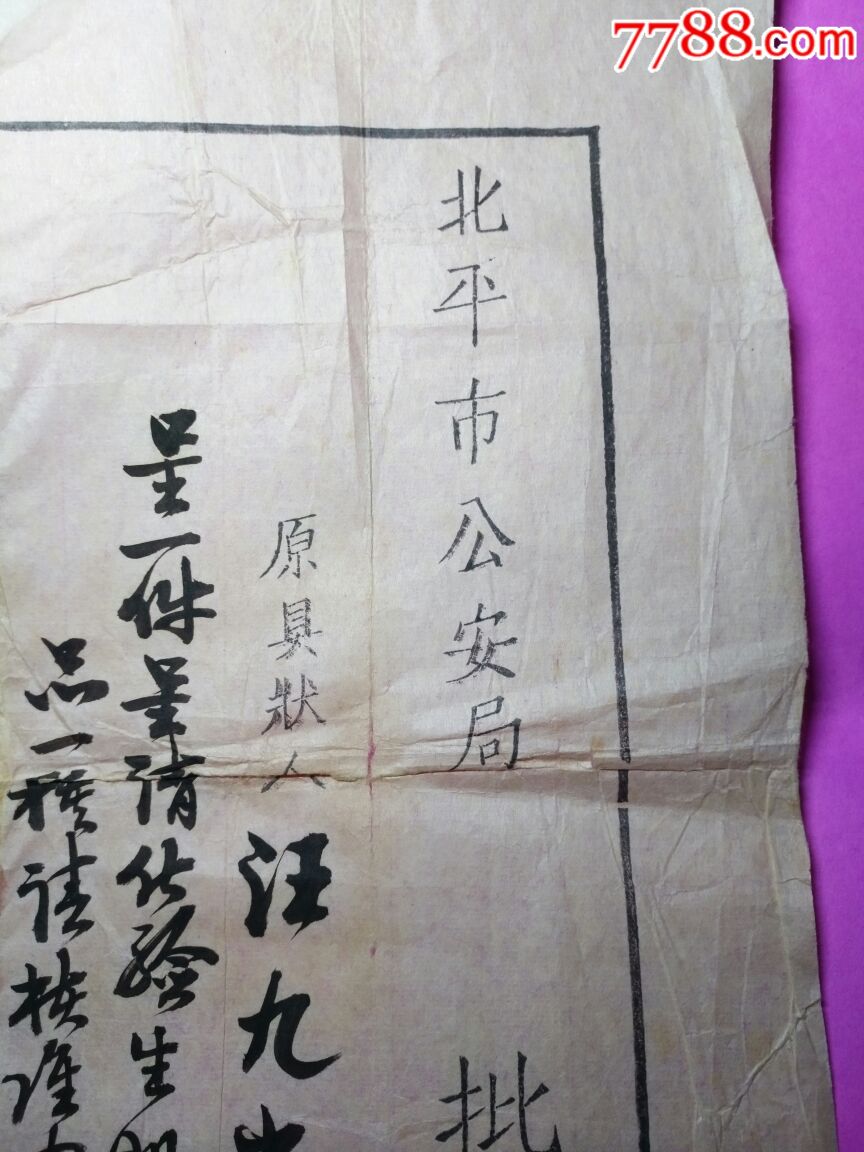 7788.com
北平市公安局 批
原具狀人 汪九
呈一件呈請化驗生肌
品一種請核准